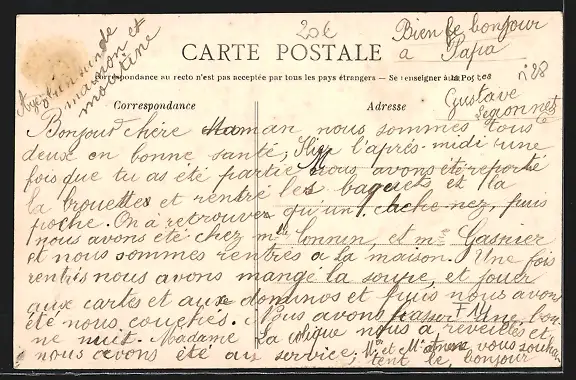 20€
Bien le bonjour
a Papa
maman et
CARTE POSTALE
Correspondance au recto n'est pas acceptée par tous les pays étrangers — Se renseigner à la Postes
n° 28
Correspondance
Adresse
Gustave
Bonjour chère Maman nous sommes tous
deux en bonne santé, Hier l'après-midi une
fois que tu as été partie nous avons été reporté
la brouettes et rentré les baquets et la
poche. On à retrouver qu'un cache nez, puis
nous avons été chez mlle et me Gasnier
et nous sommes rentrés a la maison. Une fois
rentrés nous avons mangé la soupe, et jouer
aux cartes et aux dominos et puis nous avons
été nous couchés. Nous avons passer une bon
ne nuit. Madame La colique nous a réveillés et
nous avons été au service. Mr et Me vous souhai
tent le bonjour